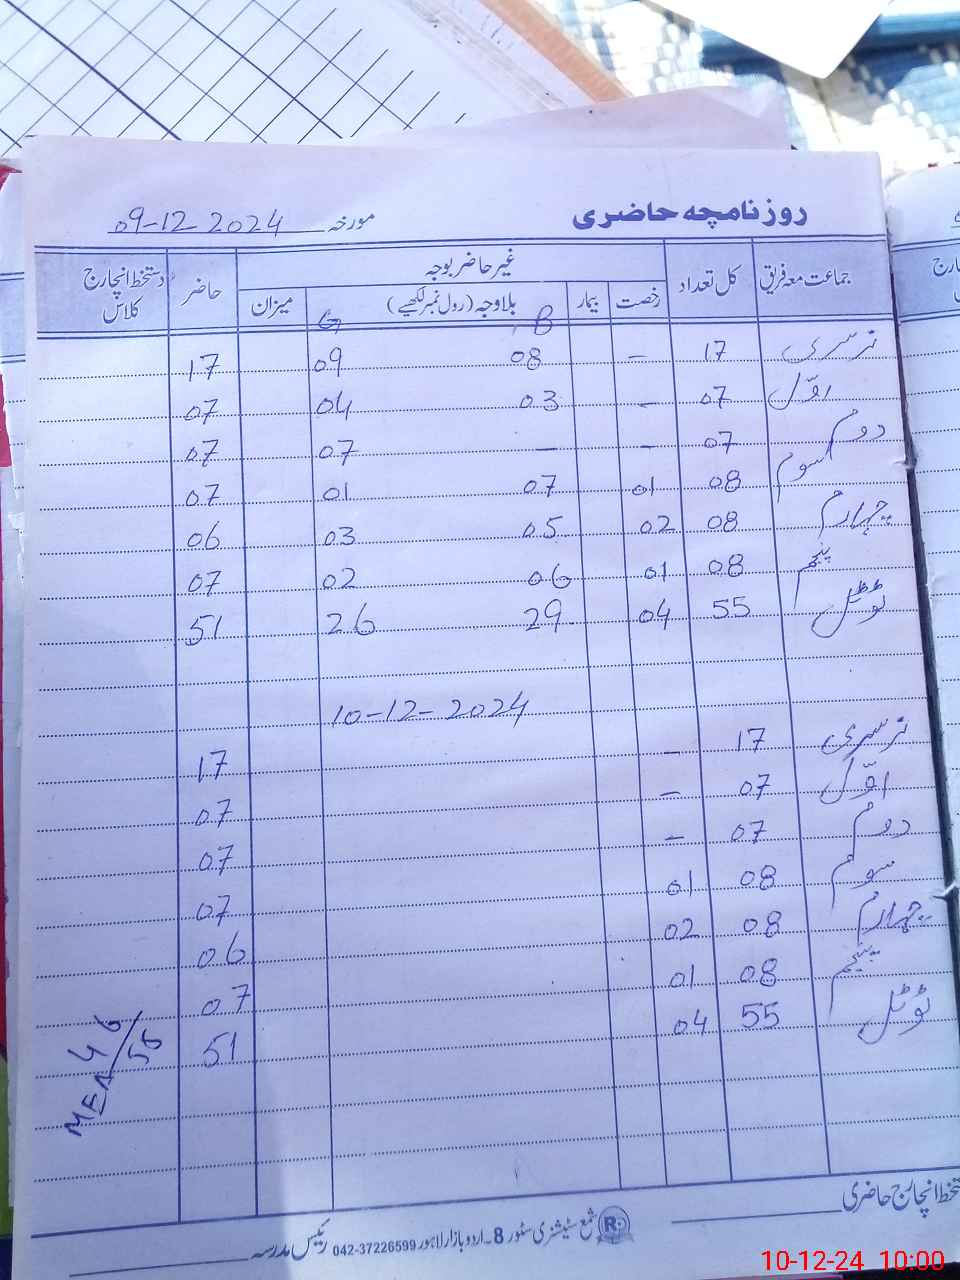 روزنامچہ حاضری مورخہ 09-12-2024
جماعت معہ فریق کل تعداد غیر حاضر بوجہ حاضر دستخط انچارج کلاس
رخصت بیمار بلاوجہ (رول نمبر لکھیے) میزان
B G
نرسری 17 - 08 09 17
اوّل 07 - 03 04 07
دوم 07 - - 07 07
سوم 08 01 07 01 07
چہارم 08 02 05 03 06
پنجم 08 01 06 02 07
ٹوٹل 55 04 29 26 51
10-12-2024
نرسری 17 - 17
اوّل 07 - 07
دوم 07 - 07
سوم 08 01 07
چہارم 08 02 06
پنجم 08 01 07
ٹوٹل 55 04 51
MEA 46/55
دستخط انچارج حاضری
شمع سٹیشنری سٹور 8-اردو بازار لاہور 042-37226599
R
مدرسہ
10-12-24 10:00